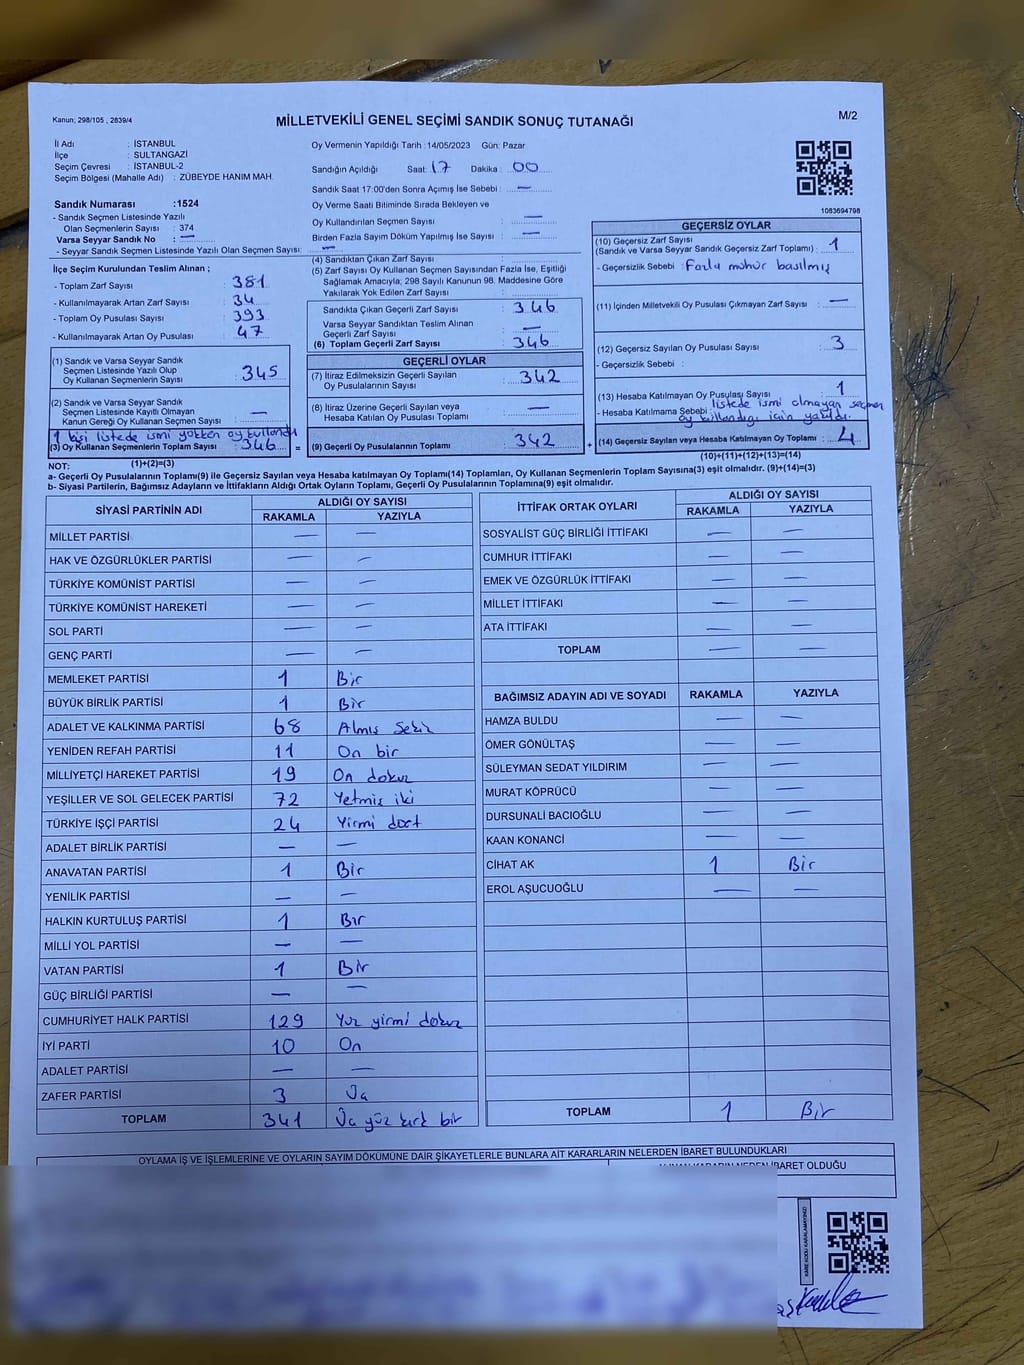 Kanun; 298/105 , 2839/4
MİLLETVEKİLİ GENEL SEÇİMİ SANDIK SONUÇ TUTANAĞI
M/2
İl Adı : İSTANBUL
İlçe : SULTANGAZİ
Seçim Çevresi : İSTANBUL-2
Seçim Bölgesi (Mahalle Adı) : ZÜBEYDE HANIM MAH.
Oy Vermenin Yapıldığı Tarih : 14/05/2023 Gün: Pazar
Sandığın Açıldığı Saat: 17 Dakika : 00
Sandık Saat 17:00'den Sonra Açımış İse Sebebi : —
Oy Verme Saati Bitiminde Sırada Bekleyen ve
Oy Kullandırılan Seçmen Sayısı : —
Birden Fazla Sayım Döküm Yapılmış İse Sayısı : —
1083694798
Sandık Numarası :1524
- Sandık Seçmen Listesinde Yazılı
Olan Seçmenlerin Sayısı : 374
Varsa Seyyar Sandık No : —
- Seyyar Sandık Seçmen Listesinde Yazılı Olan Seçmen Sayısı: —
İlçe Seçim Kurulundan Teslim Alınan ;
- Toplam Zarf Sayısı : 381
- Kullanılmayarak Artan Zarf Sayısı : 34
- Toplam Oy Pusulası Sayısı : 393
- Kullanılmayarak Artan Oy Pusulası : 47
(1) Sandık ve Varsa Seyyar Sandık
Seçmen Listesinde Yazılı Olup
Oy Kullanan Seçmenlerin Sayısı : 345
(2) Sandık ve Varsa Seyyar Sandık
Seçmen Listesinde Kayıtlı Olmayan
Kanun Gereği Oy Kullanan Seçmen Sayısı : —
1 kişi listede ismi yokken oy kullandı
(3) Oy Kullanan Seçmenlerin Toplam Sayısı : 346
(1)+(2)=(3)
(4) Sandıktan Çıkan Zarf Sayısı :
(5) Zarf Sayısı Oy Kullanan Seçmen Sayısından Fazla İse, Eşitliği
Sağlamak Amacıyla; 298 Sayılı Kanunun 98. Maddesine Göre
Yakılarak Yok Edilen Zarf Sayısı :
Sandıkta Çıkan Geçerli Zarf Sayısı : 346
Varsa Seyyar Sandıktan Teslim Alınan
Geçerli Zarf Sayısı : —
(6) Toplam Geçerli Zarf Sayısı : 346
GEÇERLİ OYLAR
(7) İtiraz Edilmeksizin Geçerli Sayılan
Oy Pusulalarının Sayısı : 342
(8) İtiraz Üzerine Geçerli Sayılan veya
Hesaba Katılan Oy Pusulası Toplamı : —
= (9) Geçerli Oy Pusulalarının Toplamı : 342
GEÇERSİZ OYLAR
(10) Geçersiz Zarf Sayısı
(Sandık ve Varsa Seyyar Sandık Geçersiz Zarf Toplamı) : 1
- Geçersizlik Sebebi : Fazla mühür basılmış
(11) İçinden Milletvekili Oy Pusulası Çıkmayan Zarf Sayısı : —
(12) Geçersiz Sayılan Oy Pusulası Sayısı : 3
- Geçersizlik Sebebi :
(13) Hesaba Katılmayan Oy Pusulası Sayısı : 1
- Hesaba Katılmama Sebebi : listede ismi olmayan seçmen
oy kullandığı için yazıldı.
+ (14) Geçersiz Sayılan veya Hesaba Katılmayan Oy Toplamı : 4
(10)+(11)+(12)+(13)=(14)
NOT:
a- Geçerli Oy Pusulalarının Toplamı(9) ile Geçersiz Sayılan veya Hesaba katılmayan Oy Toplamı(14) Toplamları, Oy Kullanan Seçmenlerin Toplam Sayısına(3) eşit olmalıdır. (9)+(14)=(3)
b- Siyasi Partilerin, Bağımsız Adayların ve İttifakların Aldığı Ortak Oyların Toplamı, Geçerli Oy Pusulalarının Toplamına(9) eşit olmalıdır.
SİYASİ PARTİNİN ADI ALDIĞI OY SAYISI
RAKAMLA YAZIYLA
MİLLET PARTİSİ — —
HAK VE ÖZGÜRLÜKLER PARTİSİ — —
TÜRKİYE KOMÜNİST PARTİSİ — —
TÜRKİYE KOMÜNİST HAREKETİ — —
SOL PARTİ — —
GENÇ PARTİ — —
MEMLEKET PARTİSİ 1 Bir
BÜYÜK BİRLİK PARTİSİ 1 Bir
ADALET VE KALKINMA PARTİSİ 68 Almış Sekiz
YENİDEN REFAH PARTİSİ 11 On bir
MİLLİYETÇİ HAREKET PARTİSİ 19 On dokuz
YEŞİLLER VE SOL GELECEK PARTİSİ 72 Yetmiş iki
TÜRKİYE İŞÇİ PARTİSİ 24 Yirmi dört
ADALET BİRLİK PARTİSİ — —
ANAVATAN PARTİSİ 1 Bir
YENİLİK PARTİSİ — —
HALKIN KURTULUŞ PARTİSİ 1 Bir
MİLLİ YOL PARTİSİ — —
VATAN PARTİSİ 1 Bir
GÜÇ BİRLİĞİ PARTİSİ — —
CUMHURİYET HALK PARTİSİ 129 Yuz yirmi dokuz
İYİ PARTİ 10 On
ADALET PARTİSİ — —
ZAFER PARTİSİ 3 Üç
TOPLAM 341 Üç yüz kırk bir
İTTİFAK ORTAK OYLARI ALDIĞI OY SAYISI
RAKAMLA YAZIYLA
SOSYALİST GÜÇ BİRLİĞİ İTTİFAKI — —
CUMHUR İTTİFAKI — —
EMEK VE ÖZGÜRLÜK İTTİFAKI — —
MİLLET İTTİFAKI — —
ATA İTTİFAKI — —
TOPLAM — —
BAĞIMSIZ ADAYIN ADI VE SOYADI RAKAMLA YAZIYLA
HAMZA BULDU — —
ÖMER GÖNÜLTAŞ — —
SÜLEYMAN SEDAT YILDIRIM — —
MURAT KÖPRÜCÜ — —
DURSUNALİ BACIOĞLU — —
KAAN KONANCİ — —
CİHAT AK 1 Bir
EROL AŞUCUOĞLU — —
TOPLAM 1 Bir
OYLAMA İŞ VE İŞLEMLERİNE VE OYLARIN SAYIM DÖKÜMÜNE DAİR ŞİKAYETLERLE BUNLARA AİT KARARLARIN NELERDEN İBARET BULUNDUKLARI
ALINAN KARARIN NEDEN İBARET OLDUĞU
KARE KODU KARALAMAYINIZ!